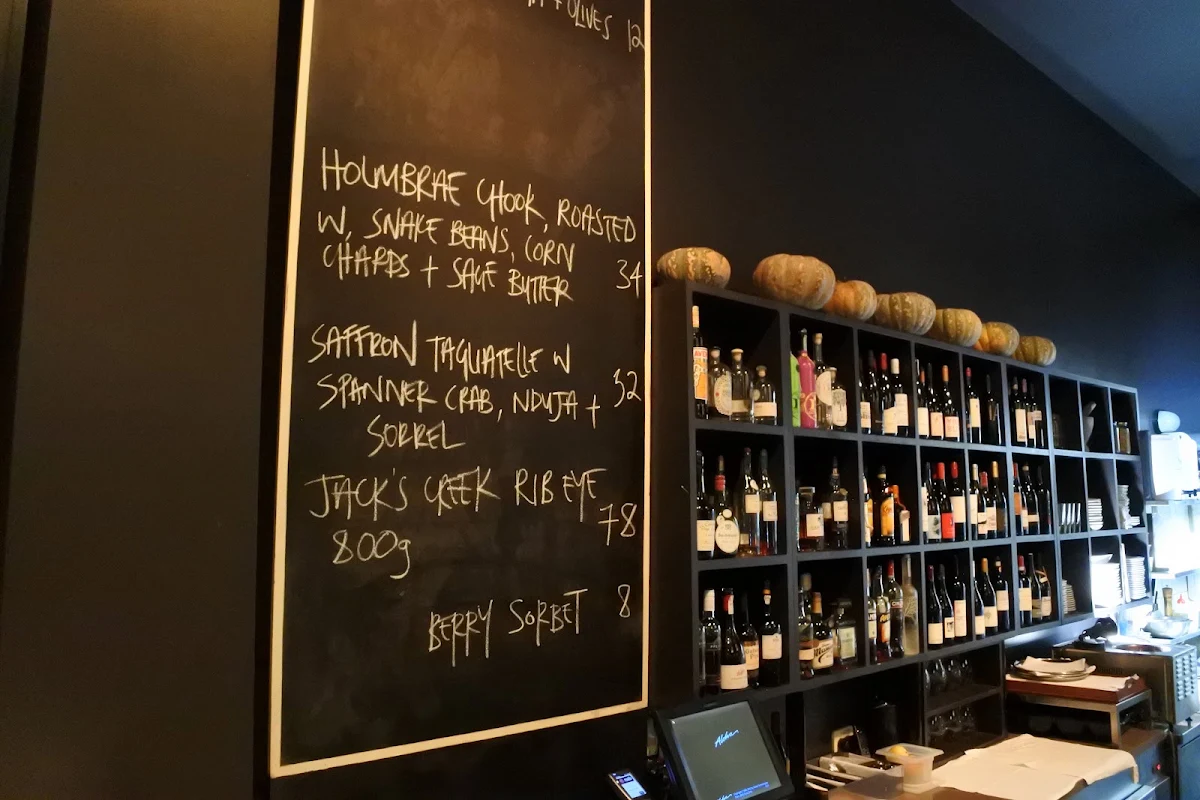 + OLIVES 12
HOLMBRAE CHOOK, ROASTED
W, SNAKE BEANS, CORN
CHARDS + SAGE BUTTER 34
SAFFRON TAGLIATELLE W
SPANNER CRAB, NDUJA + 32
SORREL
JACK'S CREEK RIB EYE
800g 78
BERRY SORBET 8
Aloha